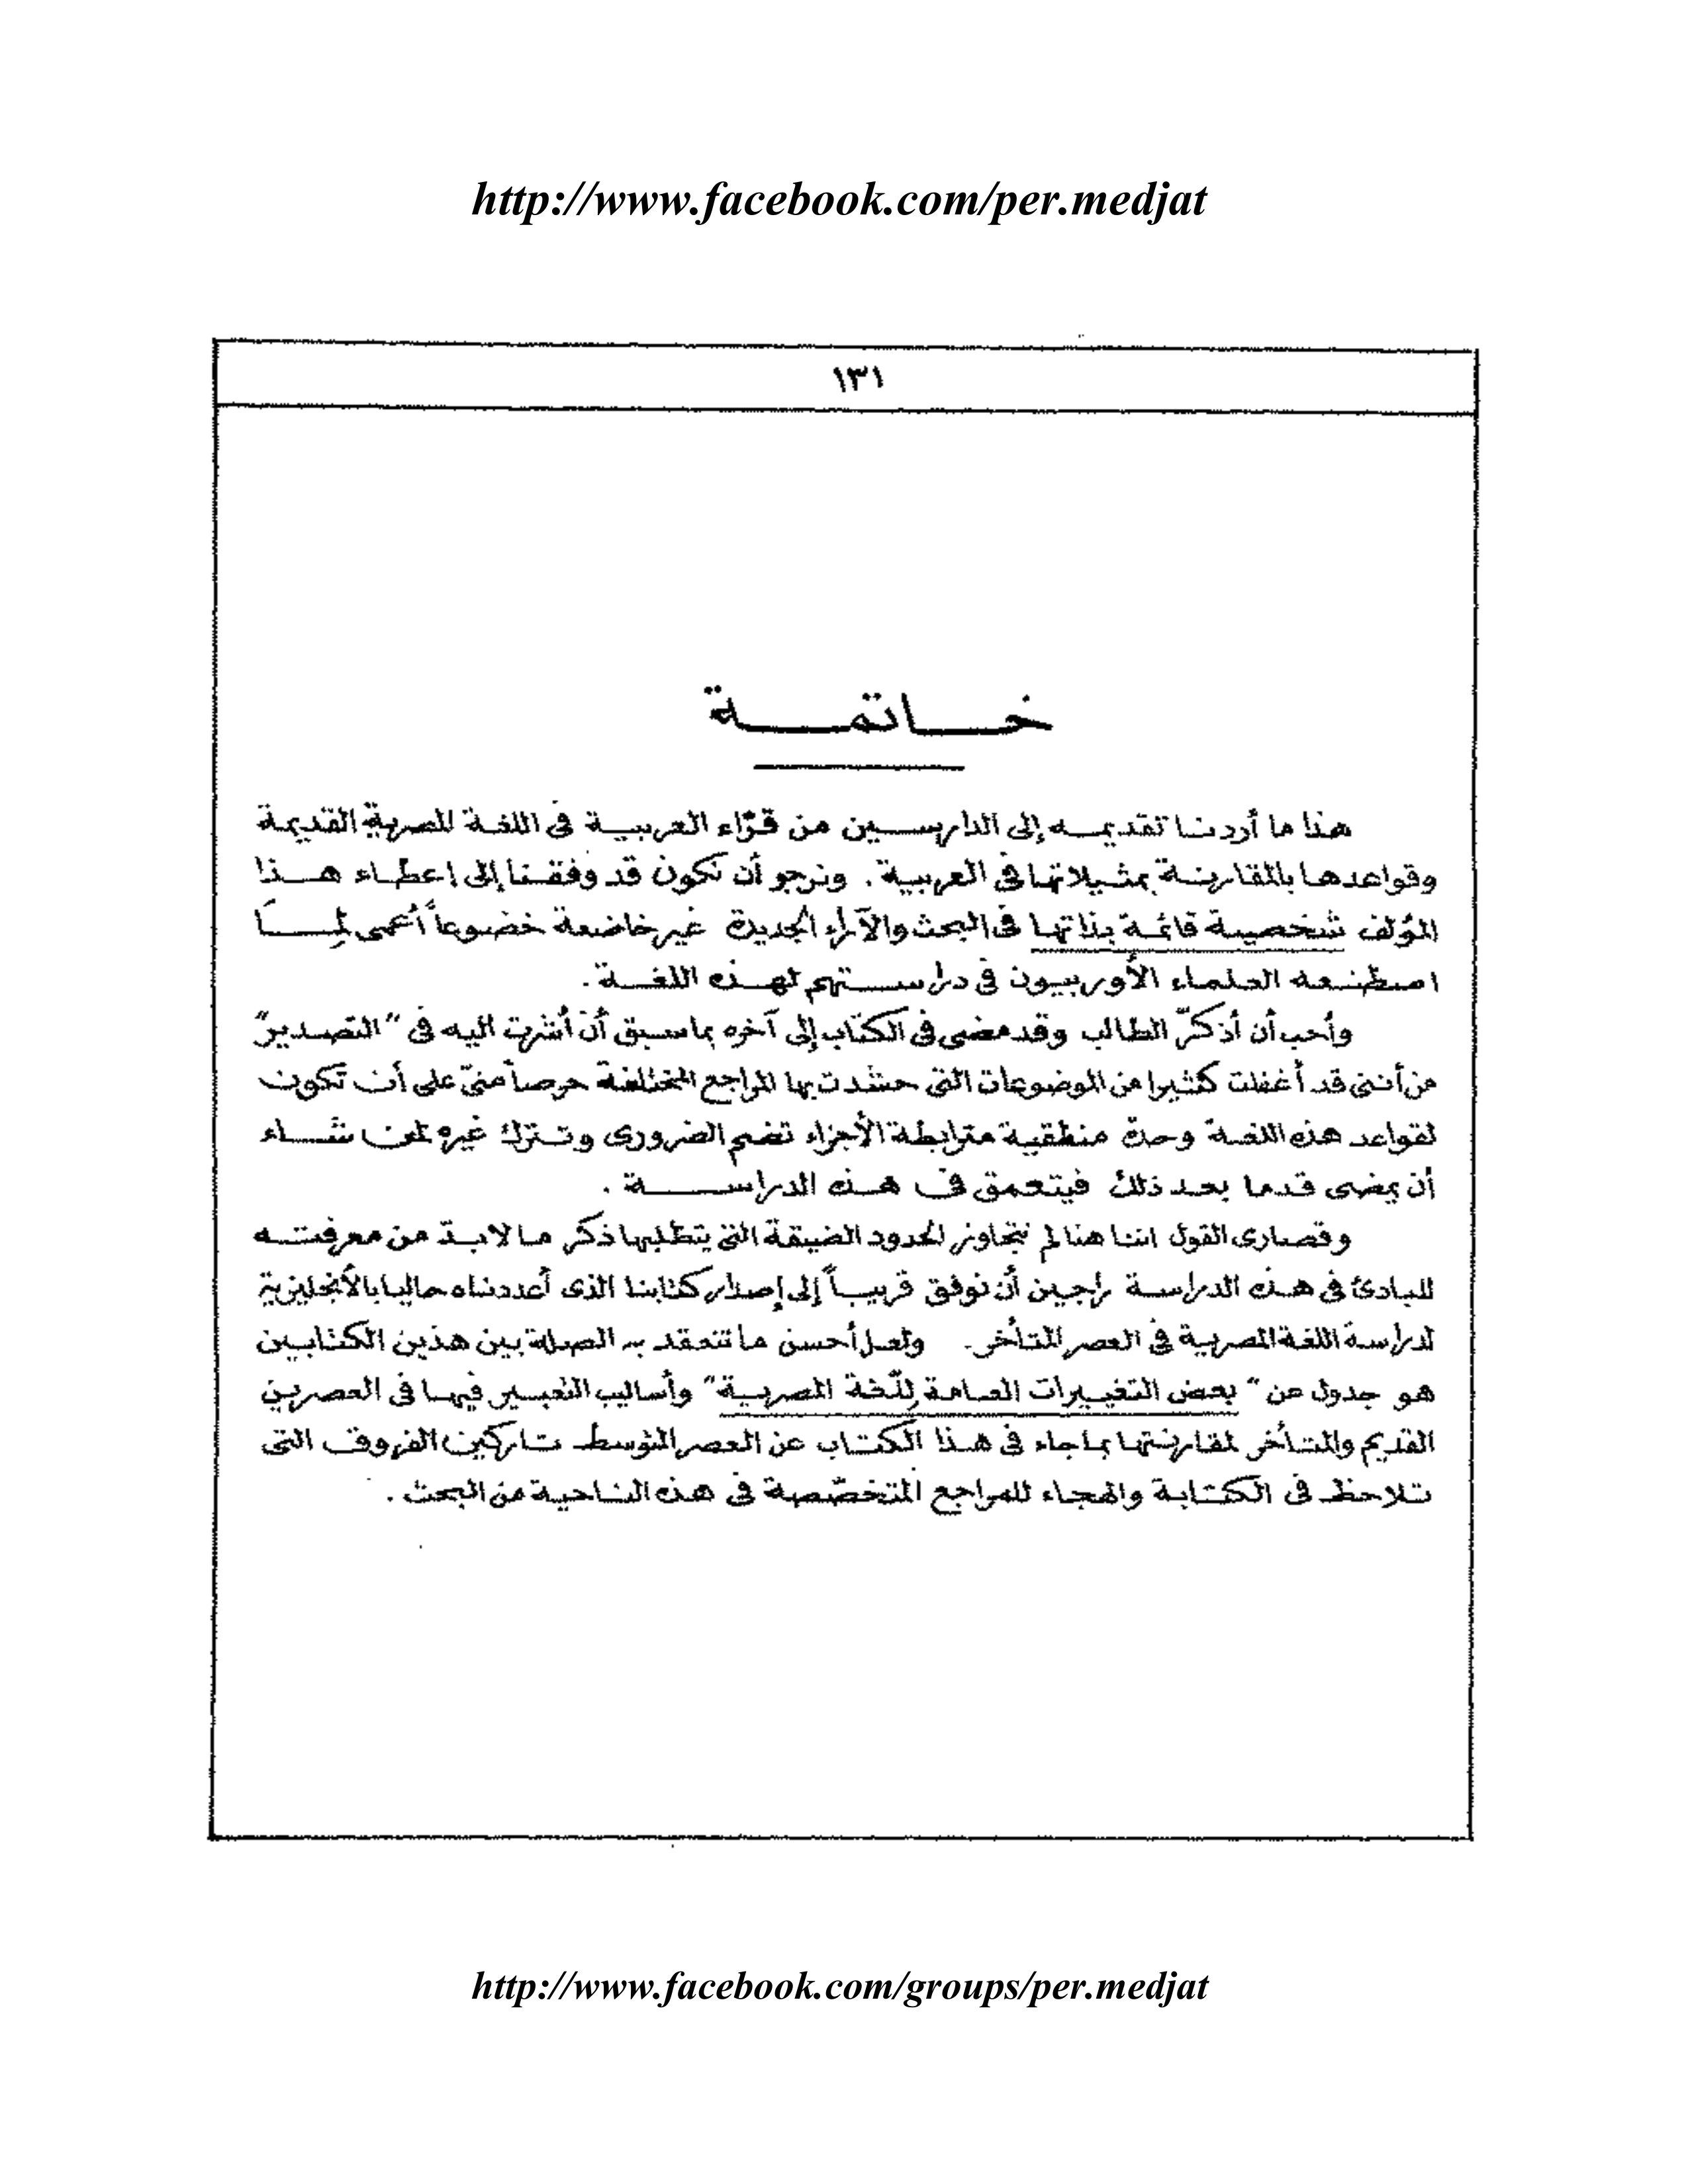 http://www.facebook.com/per.medjat
١٣١
خاتمة
هذا ما أردنا تقديمه إلى الدارسين من قرّاء العربية فى اللغة المصرية القديمة
وقواعدها بالمقارنة بمثيلاتها فى العربية . ونرجو أن نكون قد وفقنا إلى إعطاء هذا
المؤلف شخصية قائمة بذاتها فى البحث والآراء الجديدة غير خاضعة خضوعاً أعمى لِمَا
اصطنعه العلماء الأوربيون فى دراستهم لهذه اللغة .
وأحب أن أذكرّ الطالب وقد مضى فى الكتاب إلى آخره بما سبق أن أشرت اليه فى "التصدير"
من أننى قد أغفلت كثيرا من الموضوعات التى حشدت بها المراجع المختلفة حرصاً منىّ على أن تكون
لقواعد هذه اللغة وحدة منطقية مترابطة الأجزاء تضم الضرورى وتترك غيره لمن شاء
أن يمضى قدما بعد ذلك فيتعمق فى هذه الدراسة .
وقصارى القول اننا هنا لم نتجاوز الحدود الضيقة التى يتطلبها ذكر ما لابدّ من معرفته
للبادئ فى هذه الدراسة راجين أن نوفق قريباً إلى إصدار كتابنا الذى أعددناه حاليا بالأنجليزية
لدراسة اللغة المصرية فى العصر المتأخر . ولعل أحسن ما تنعقد به الصلة بين هذين الكتابين
هو جدول عن "بعض التغييرات العامة لِلّغة المصرية" وأساليب التعبير فيها فى العصرين
القديم والمتأخر لمقارنتها بما جاء فى هذا الكتاب عن العصر المتوسط تاركين الفروق التى
تلاحظ فى الكتابة والهجاء للمراجع المتخصّصة فى هذه الناحية من البحث .
http://www.facebook.com/groups/per.medjat